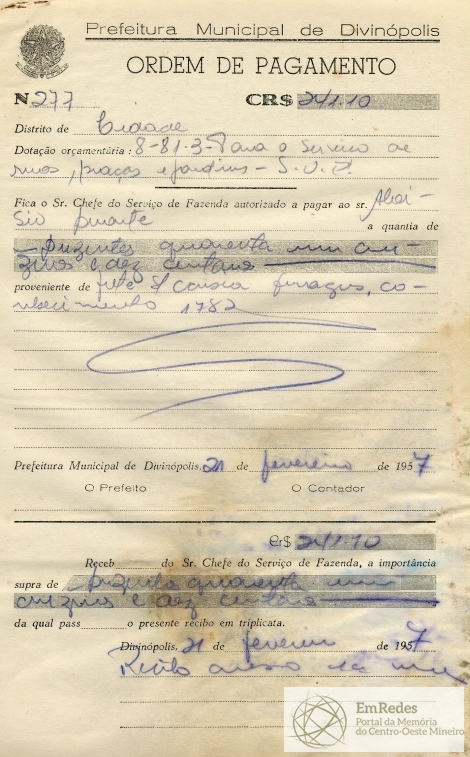 Prefeitura Municipal de Divinópolis
ORDEM DE PAGAMENTO
N 277 CR$ 241.10
Distrito de Cidade
Dotação orçamentária: 8-81-3-Para o Serviço de
ruas, praças e jardins - S.U.P.
Fica o Sr. Chefe do Serviço de Fazenda autorizado a pagar ao sr. Aloi-
sio Duarte a quantia de
duzentos quarenta um cru-
zeiros e dez centavos
proveniente de frete ferragens, co-
nhecimento 1782
Prefeitura Municipal de Divinópolis, 21 de fevereiro de 1957
O Prefeito O Contador
Cr$ 241.10
Receb do Sr. Chefe do Serviço de Fazenda, a importância
supra de duzentos quarenta um
cruzeiros e dez centavos
da qual pass o presente recibo em triplicata.
Divinópolis, 21 de fevereiro de 1957
Recibo anexo
EmRedes
Portal da Memória
do Centro-Oeste Mineiro